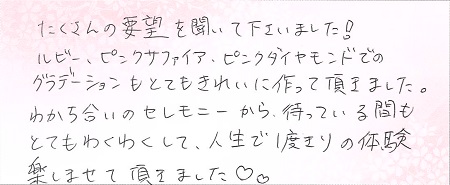 たくさんの要望を聞いて下さいました!
ルビー、ピンクサファイア、ピンクダイヤモンドでの
グラデーションもとてもきれいに作って頂きました。
わかち合いのセレモニーから、待っている間も
とてもわくわくして、人生で1度きりの体験
楽しませて頂きました♡♡